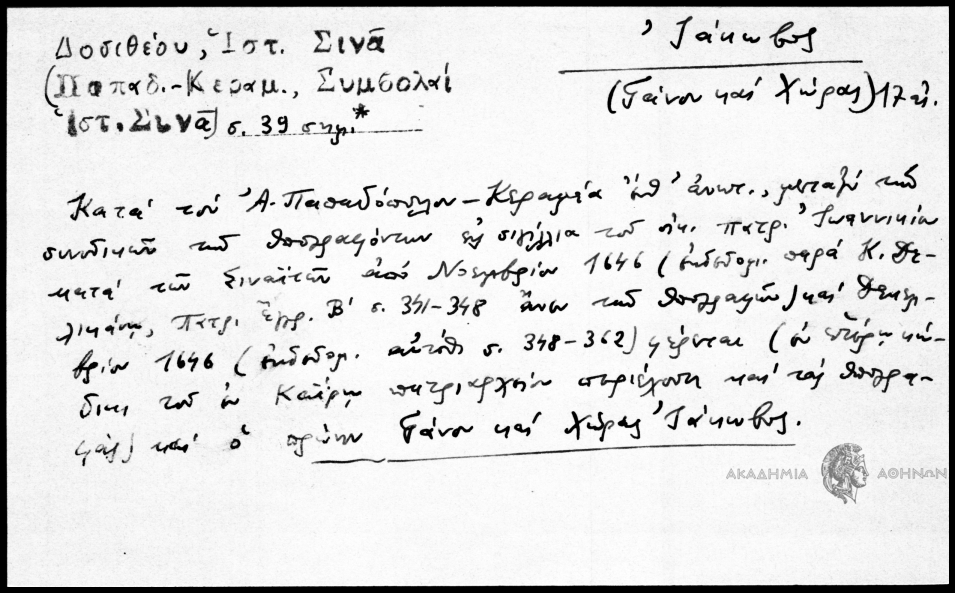 Δοσιθέου, Ἱστ. Σινᾶ
(Παπαδ.-Κεραμ., Συμβολαί
Ἱστ. Σινᾶ) σ. 39 σημ.*
Ἰάκωβος
(Γάνου καί Χώρας) 17 αἰ.
Κατά τόν Ἀ. Παπαδόπουλον-Κεραμέα ἔνθ' ἀνωτ., μεταξύ τῶν
συνοδικῶν τῶν ὑπογραφόντων ἐν σιγίλλια τοῦ οἰκ. πατρ. Ἰωαννικίου
κατά τῶν Σιναϊτῶν ἀπό Νοεμβρίου 1646 (ἐκδεδομ. παρά Κ. Δε-
λικάνη, Πατρ. Ἔγγρ. Β' σ. 341-348 ἄνευ τῶν ὑπογραφῶν) καί Δεκεμ-
βρίου 1646 (ἐκδεδομ. αὐτόθι σ. 348-362) φέρεται (ἐν κώ-
δικι τοῦ ἐν Καΐρῳ πατριαρχείου καί τάς ὑπογρα-
φάς) καί ὁ πρώην Γάνου καί Χώρας Ἰάκωβος.
ΑΚΑΔΗΜΙΑ ΑΘΗΝΩΝ